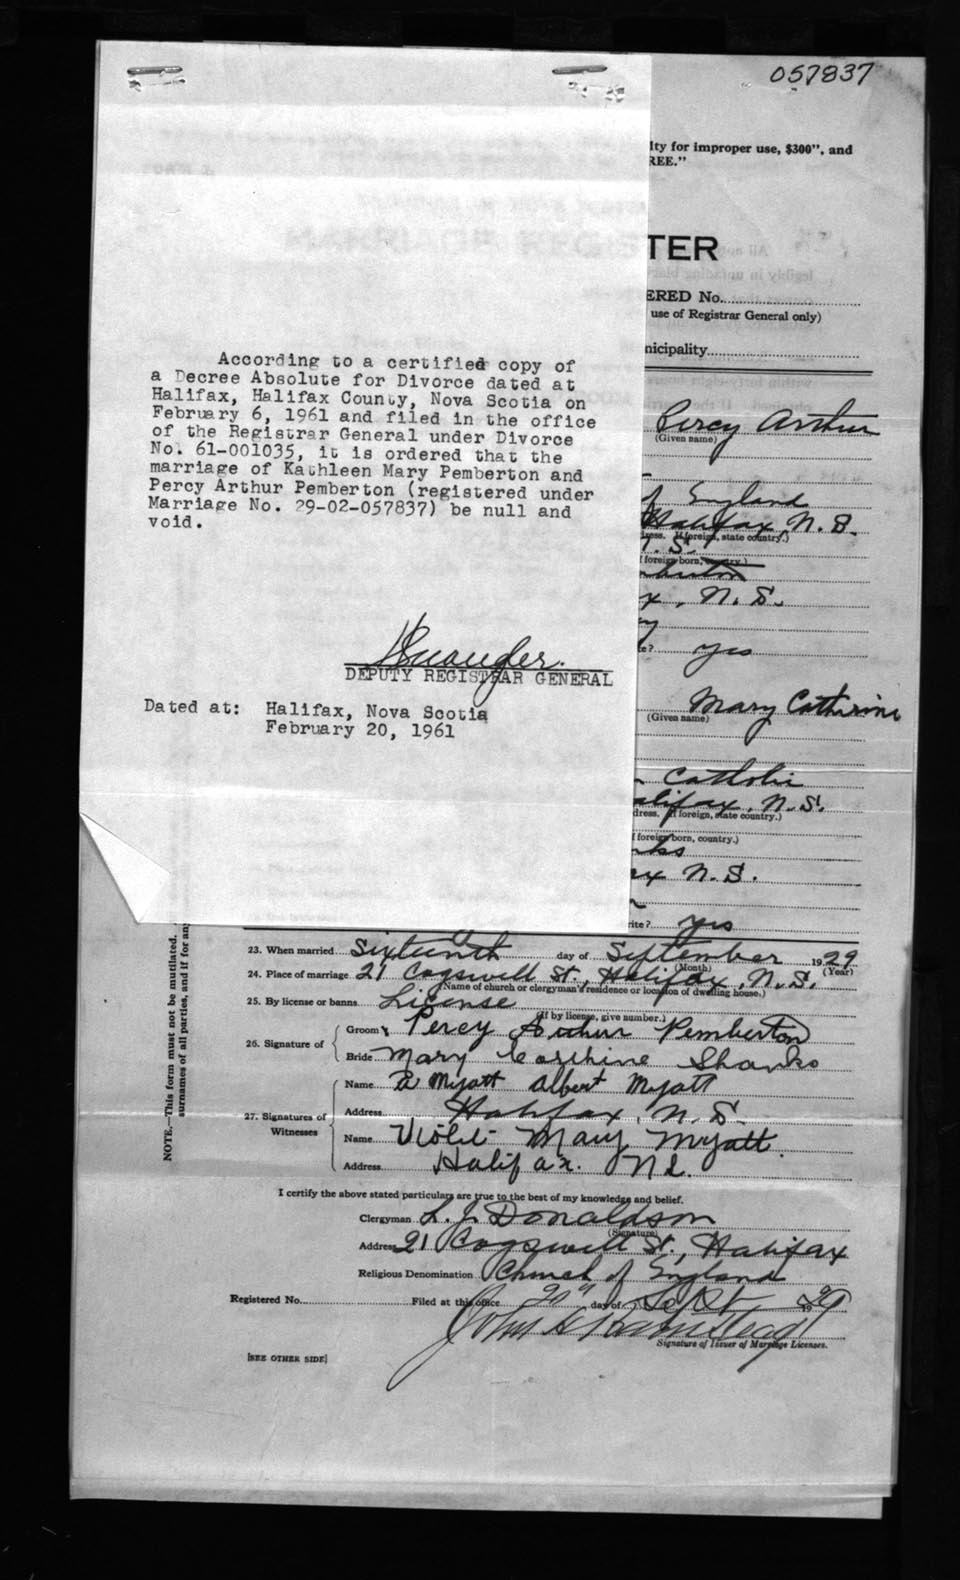 057837
lty for improper use, $300", and
REE."
TER
ERED No.
use of Registrar General only)
nicipality
According to a certified copy of
a Decree Absolute for Divorce dated at
Halifax, Halifax County, Nova Scotia on
February 6, 1961 and filed in the office
of the Registrar General under Divorce
No. 61-001035, it is ordered that the
marriage of Kathleen Mary Pemberton and
Percy Arthur Pemberton (registered under
Marriage No. 29-02-057837) be null and
void.
DEPUTY REGISTRAR GENERAL
Dated at: Halifax, Nova Scotia
February 20, 1961
Percy Arthur
(Given name)
of England
Halifax, N.S.
dress. If foreign, state country.)
N. S.
f foreign born, country.)
mberton
x, N. S.
te? yes
Mary Catherine
(Given name)
Catholic
alifax, N.S.
dress. If foreign, state country.)
f foreign born, country.)
nks
ax N.S.
rite? yes
NOTE.—This form must not be mutilated.
surnames of all parties, and if for any
23. When married Sixteenth day of September 1929
(Month) (Year)
24. Place of marriage 21 Cogswell St., Halifax, N.S.
(Name of church or clergyman's residence or location of dwelling house.)
25. By license or banns License
(If by license, give number.)
26. Signature of
Groom Percy Arthur Pemberton
Bride Mary Carthine Shanks
27. Signatures of Witnesses
Name Myatt Albert Myatt
Address Halifax, N.S.
Name Violet Mary Myatt.
Address Halifax. NS.
I certify the above stated particulars are true to the best of my knowledge and belief.
Clergyman L. J. Donaldson
(Signature)
Address 21 Cogswell St., Halifax
Religious Denomination Church of England
Registered No. Filed at this office 20th day of Sept 1929
Signature of Issuer of Marriage Licenses.
[SEE OTHER SIDE]